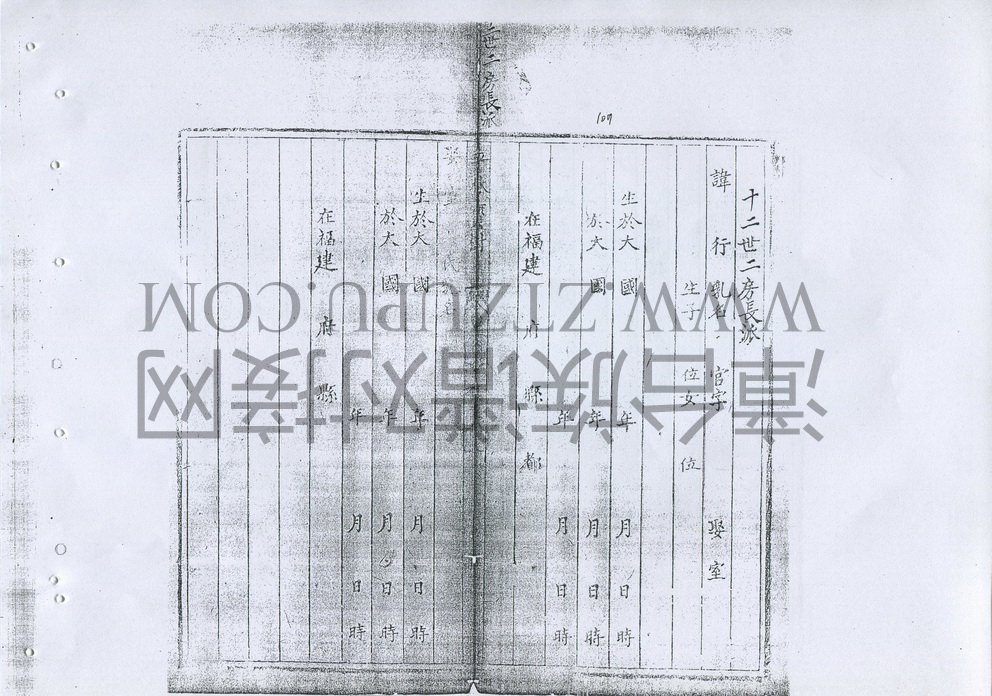 十二世二房長派
諱 行 乳名 官字 娶 室
生子 位 女 位
生於大 國 年 月 日 時
於大 國 年 月 日 時
年 月 日 時
在福建 府 縣 都
世二房長派
生於大 國 年 月 日 時
於大 國 年 月 日 時
年 月 日 時
在福建 府 縣
109
WWW.ZTZUPU.COM
漳台族谱对接网